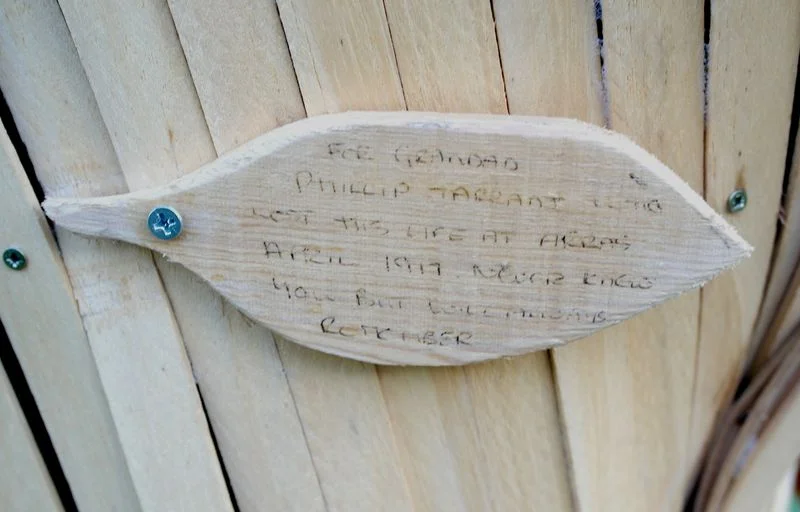 FOR GRANDAD
PHILLIP TARRANT WHO
LOST HIS LIFE AT ARRAS
APRIL 1917. NEVER KNEW
YOU BUT WILL ALWAYS
REMEMBER